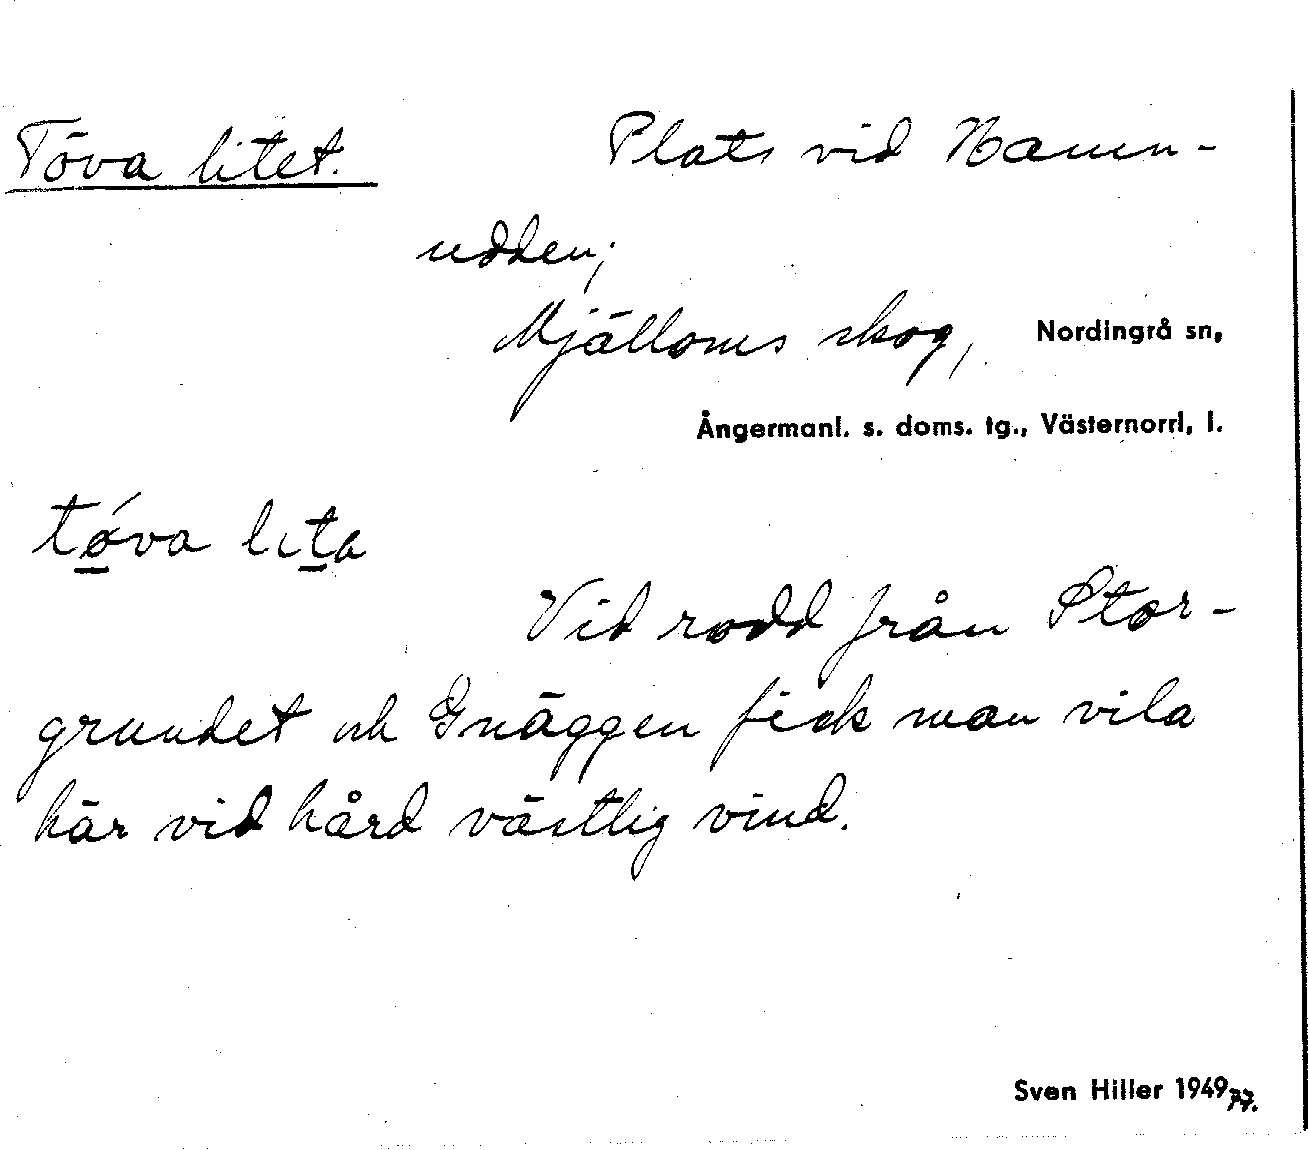 Töva litet. Plats vid Hamn-
udden;
Mjälloms skog, Nordingrå sn,
Ångermanl. s. doms. tg., Västernorrl. l.
tǿva lita
Vid rodd från Stor-
grundet och Gnäggen fick man vila
här vid hård västlig vind.
Sven Hiller 1949 77.